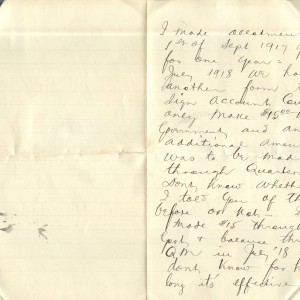 I made allotment
1st of Sept 1917
for one year =
July 1918 we ha
another form t
sign account Gov
only make $15.00
Government and an
additional amou
was to be made
through Quarter
Dont know wheth
I told you of th
before or not -
made $15 through
Govt & balance thr
Q.M in July '18
dont know for h
long its effective